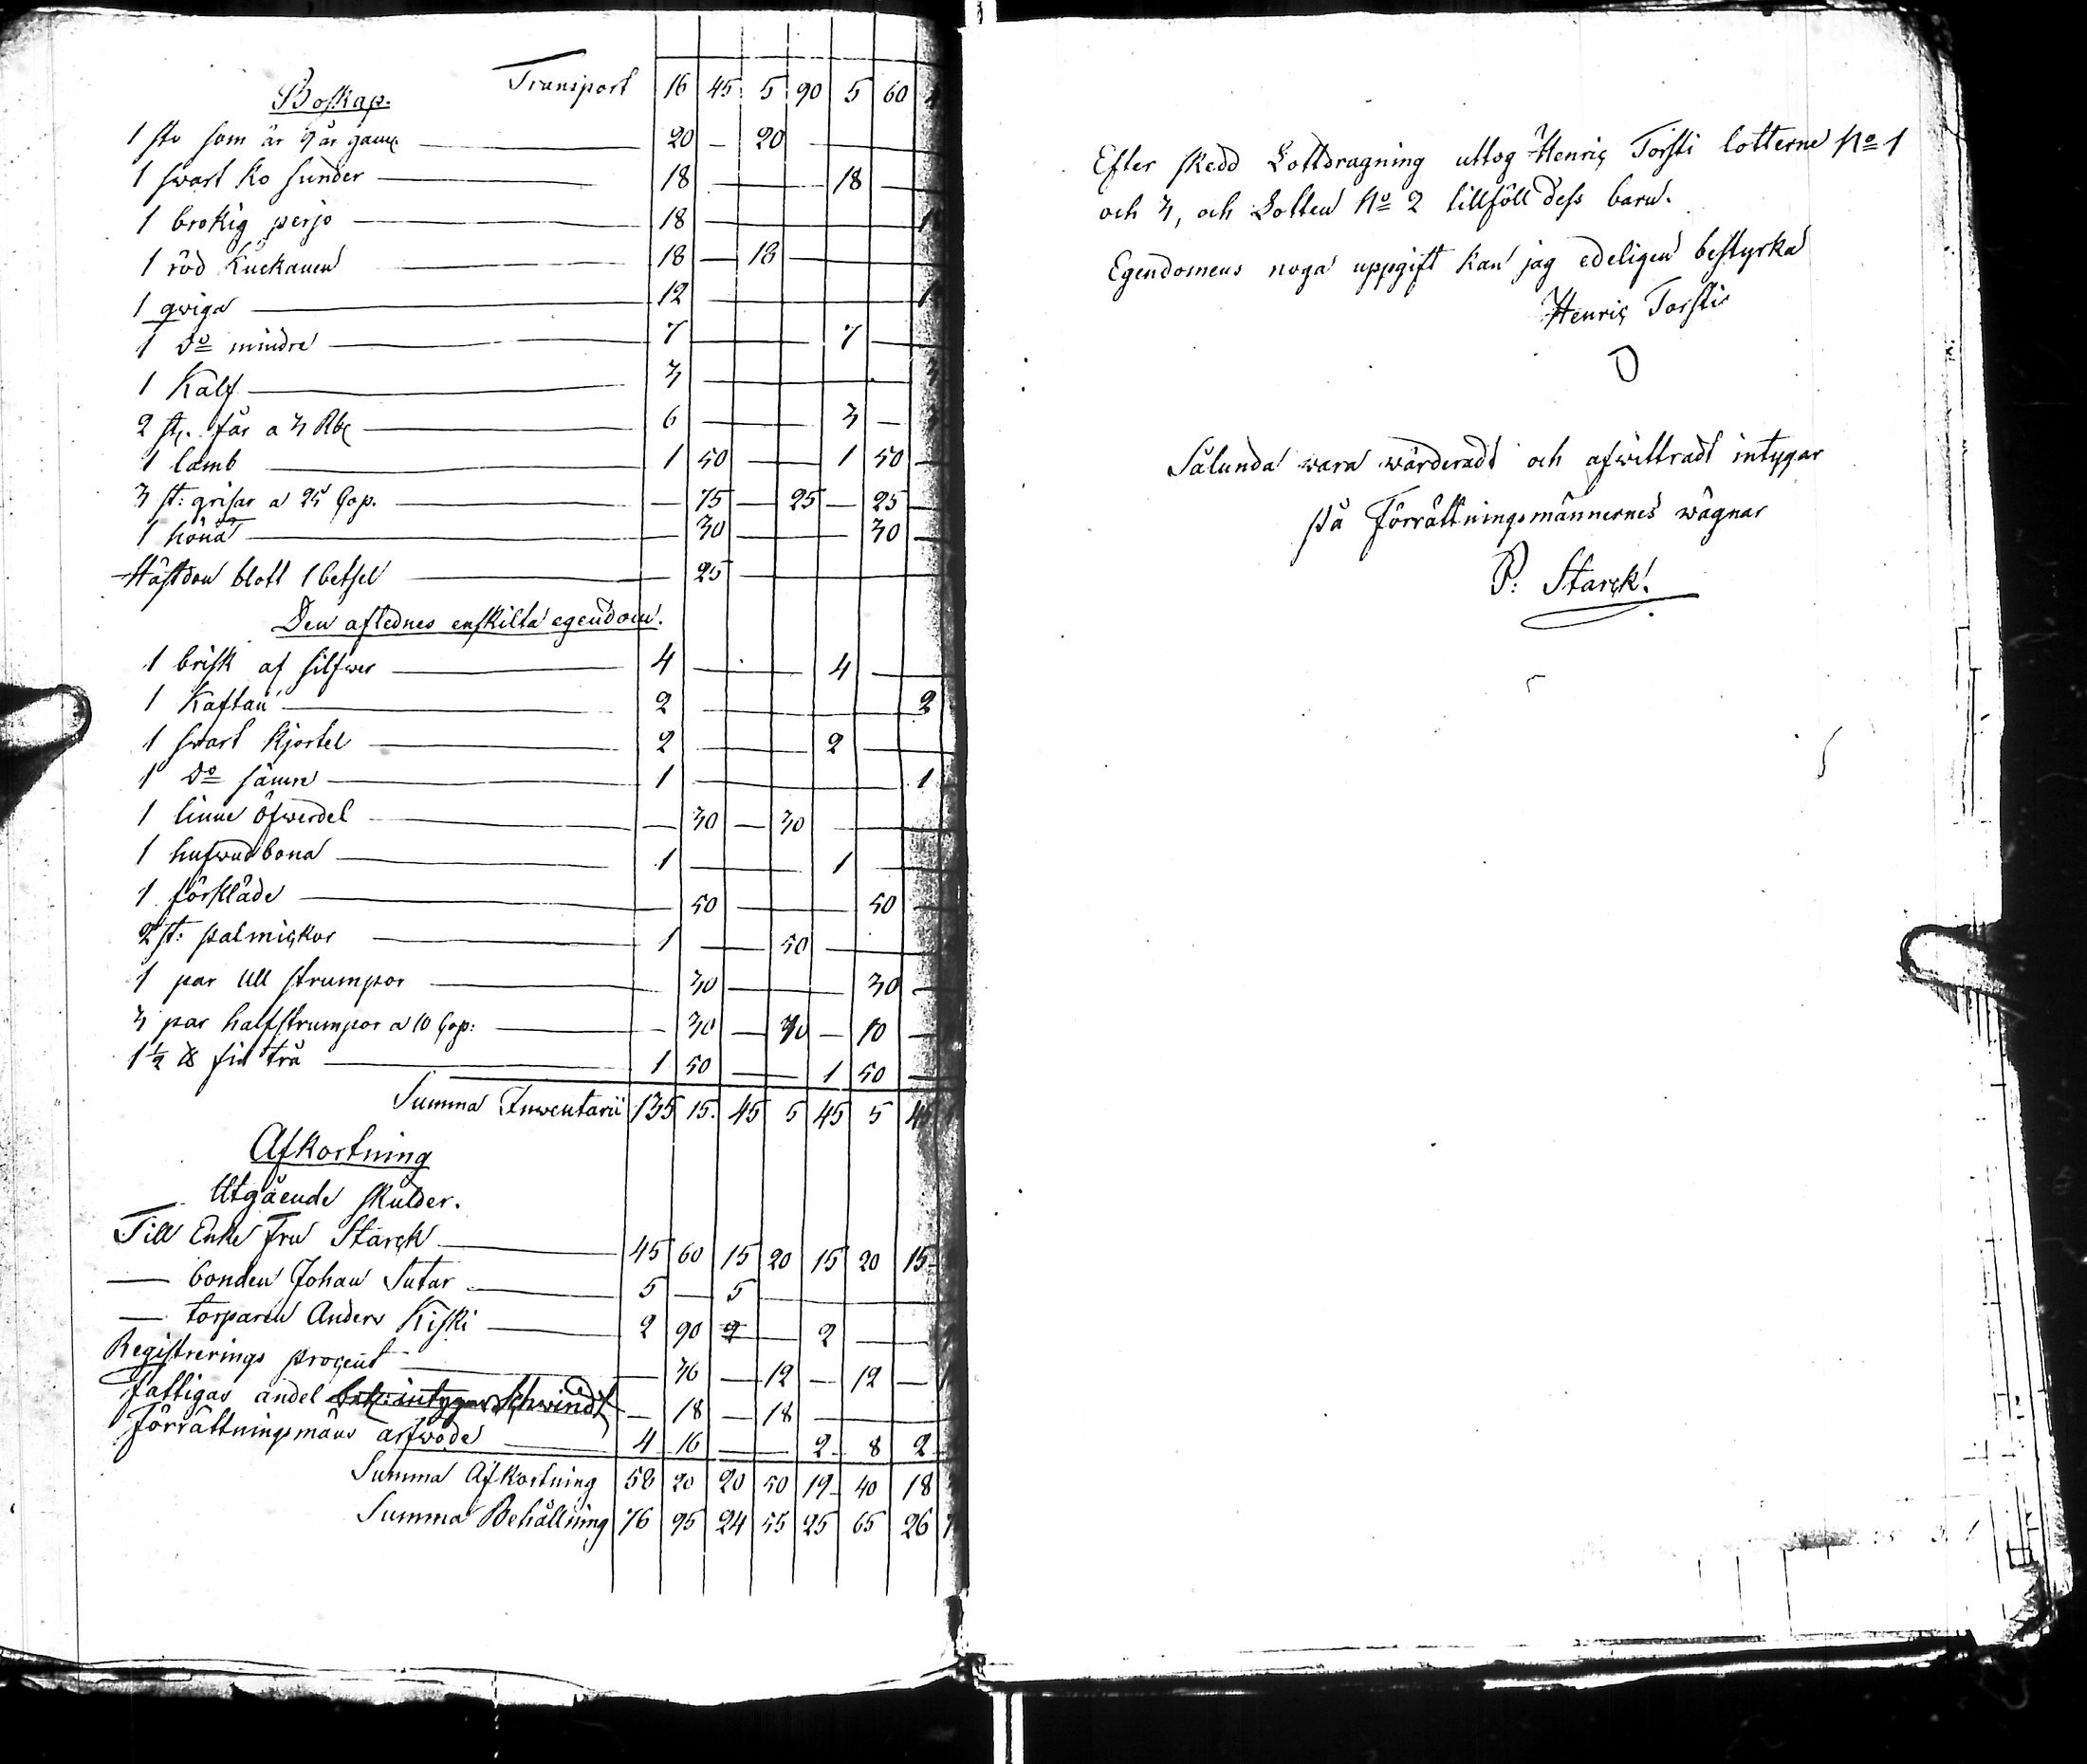 Transport 16 45 5 90 5 60
Boskap.
1 sto som är 9 år gamul 20 — 20 —
1 swart ko sunder 18 — 18 —
1 brokig perjo 18 — 1
1 röd Kuckauen 18 — 18 —
1 qwiga 12 — 1
1 do mindre 7 — 7 —
1 Kalf 3 —
2 st. får a 3 Rbl 6 — 3 —
1 lamb 1 50 — 1 50 —
3 st: grisar a 25 Cop. — 75 — 25 — 25 —
1 höna — 30 — 30 —
Hästdon blott 1 betsel — 25 —
Den aflednes enskilta egendom.
1 brisk af silfwer 4 — 4 —
1 Kaftan 2 — 2
1 swart kjortel 2 — 2 —
1 do sämre 1 — 1
1 linne öfwerdel — 30 — 30 —
1 hufwudbona 1 — 1 —
1 förkläde — 50 — 50 —
2 st: palmickor 1 — 50 —
1 par Ull strumpor — 30 — 30 —
3 par halfstrumpor a 10 Cop: — 30 — 10 — 10 —
1 1/2 ℔ fin trå 1 50 — 1 50 —
Summa Inwentarii 135 15. 45 5 45 5 45
Afkortning
Utgående skulder.
Till Enke Fru Starck 45 60 15 20 15 20 15
— bonden Johan Sutar 5 — 5 —
— torparen Anders Kiski 2 90 2 — 2 —
Registrerings procent — 36 — 12 — 12 —
fattigas andel — 18 — 18 —
Förrättningsmäns arfwode 4 16 — 2 8 2
Summa Afkortning 58 20 20 50 19 40 18
Summa Behållning 76 95 24 55 25 65 26
Efter skedd Lottdragning uttog Henric Torsti lotterne No 1
och 3, och Lotten No 2 tillföll dess barn.
Egendomens noga uppgift kan jag edeligen bestyrka
Henric Torsti
Sålunda wara wärderadt och afwittradt intygar
på Förrättningsmännernes wägnar
P: Starck.